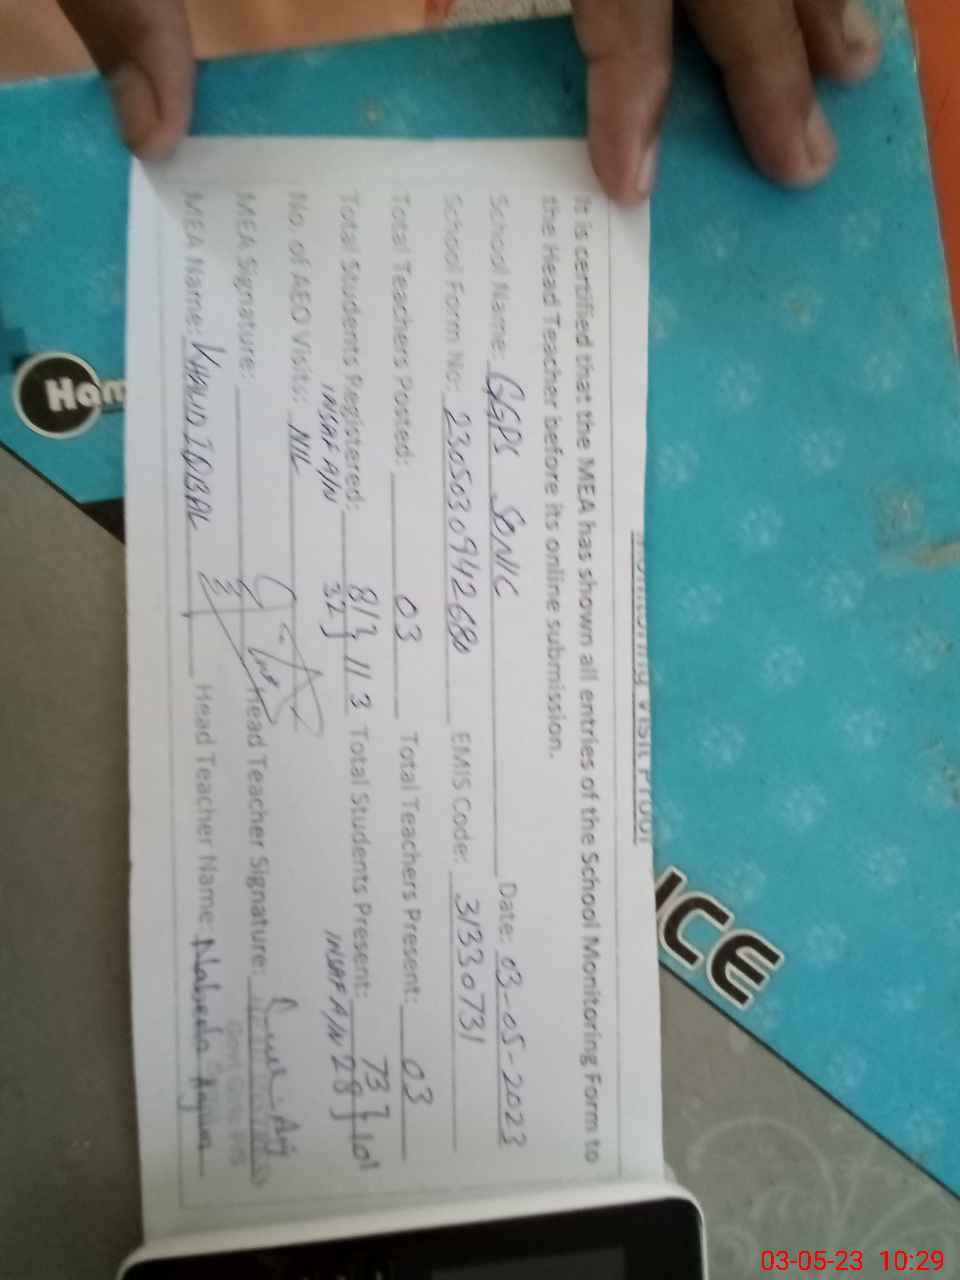 Monitoring Visit Proof
It is certified that the MEA has shown all entries of the School Monitoring Form to
the Head Teacher before its online submission.
School Name: GGPS SONIC Date: 03-05-2023
School Form No: 230503094268 EMIS Code: 31330731
Total Teachers Posted: 03 Total Teachers Present: 03
Total Students Registered: 81 } 113 Total Students Present: 73 } 101
INSAF A/N 32 INSAF A/N 28
No. of AEO Visits: NIL
MEA Signature: Head Teacher Signature:
MEA Name: KHALID IQBAL Head Teacher Name: Nabeela Anjum
Ham
ICE
03-05-23 10:29